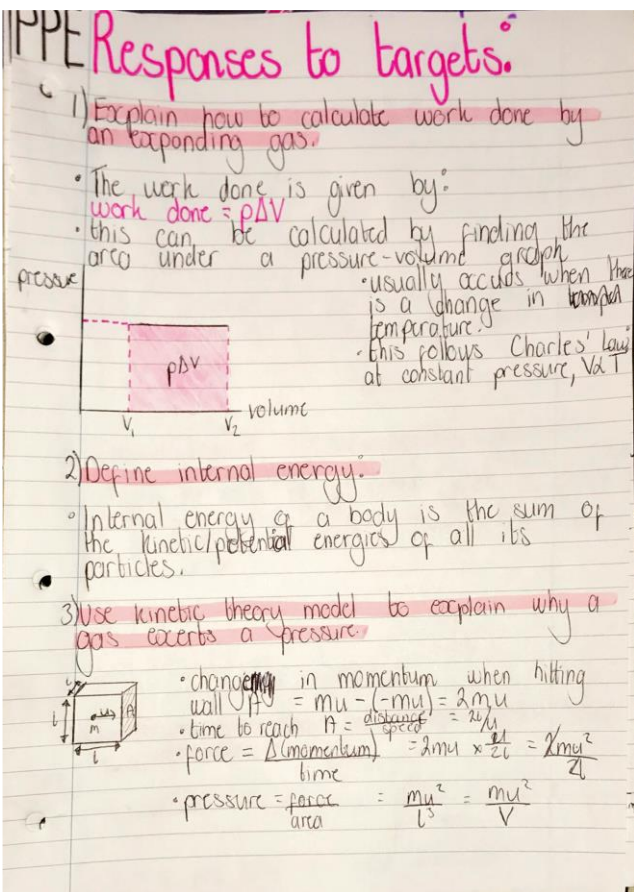 PPE Responses to targets:
1) Explain how to calculate work done by
an exponding gas.
• The work done is given by:
work done = pΔV
• this can be calculated by finding the
area under a pressure-volume graph
pressure
• usually occurs when there
is a change in
temperature.
• this follows Charles' Law
at constant pressure, V∝T
pΔV
V₁ V₂ volume
2) Define internal energy:
• Internal energy of a body is the sum of
the kinetic/potential energies of all its
particles.
3) Use kinetic theory model to explain why a
gas excerts a pressure.
• change in momentum when hitting
wall A = mu - (-mu) = 2mu
• time to reach A = distance/speed = 2l/u
• force = Δ(momentum)/time = 2mu × u/2l = 2mu²/2l
• pressure = force/area = mu²/l³ = mu²/V
l
l
m u A
l